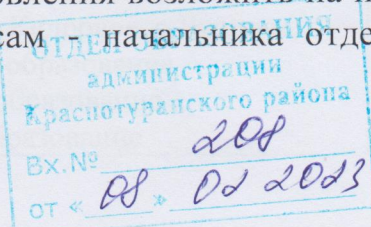 овления возложить на
сам - начальника отде
ОТДЕЛ ОБРАЗОВАНИЯ
администрации
Краснотуранского района
Вх.№ 208
от « 08 » 02 2023